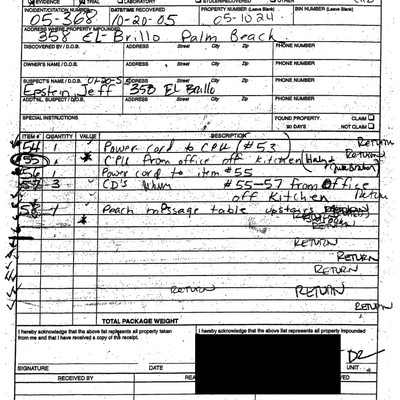 EVIDENCE TRIAL LABORATORY STOLEN/RECOVERED OTHER
INCIDENT/CITATION NUMBER DATE/TIME RECOVERED PROPERTY NUMBER (Leave Blank) BIN NUMBER (Leave Blank)
05-368 10-20-05 05-1024
ADDRESS WHERE PROPERTY IMPOUNDED
358 El-Brillo Palm Beach
DISCOVERED BY / D.O.B. ADDRESS Street City Zip PHONE NUMBER
OWNER'S NAME / D.O.B. ADDRESS Street City Zip PHONE NUMBER
SUSPECT'S NAME / D.O.B. ADDRESS Street City Zip PHONE NUMBER
Epstein, Jeff 358 El Brillo
ADDT'NL SUSPECT / D.O.B. ADDRESS Street City Zip PHONE NUMBER
SPECIAL INSTRUCTIONS FOUND PROPERTY CLAIM
90 DAYS NOT CLAIM
ITEM # QUANTITY VALUE DESCRIPTION
54 1 Power cord to CPU (#53) RETURN
55 1 CPU from office off kitchen
56 1 Power cord to item #55
57 3 CD's #55-57 from Office
off Kitchen RETURN
58 1 message table upstairs
RETURN
RETURN
RETURN
RETURN
RETURN
RETURN RETURN
RETURN
TOTAL PACKAGE WEIGHT
I hereby acknowledge that the above list represents all property taken
from me and that I have received a copy of the receipt.
I hereby acknowledge that the above list represents all property impounded
SIGNATURE DATE UNIT
RECEIVED BY